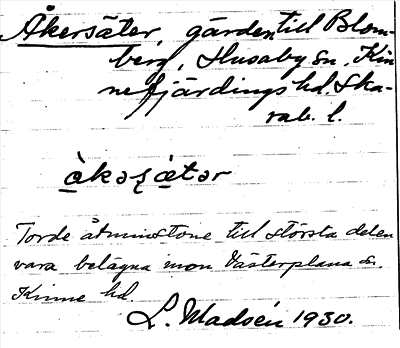 Åkersäter, gården till Blom-
berg, Husaby sn, Kin-
nefjärdings hd. Ska-
rab. l.
àkəʂætər
Torde åtminstone till största delen
vara belägna inom Västerplana sn.
Kinne hd.
L. Madsén 1930.